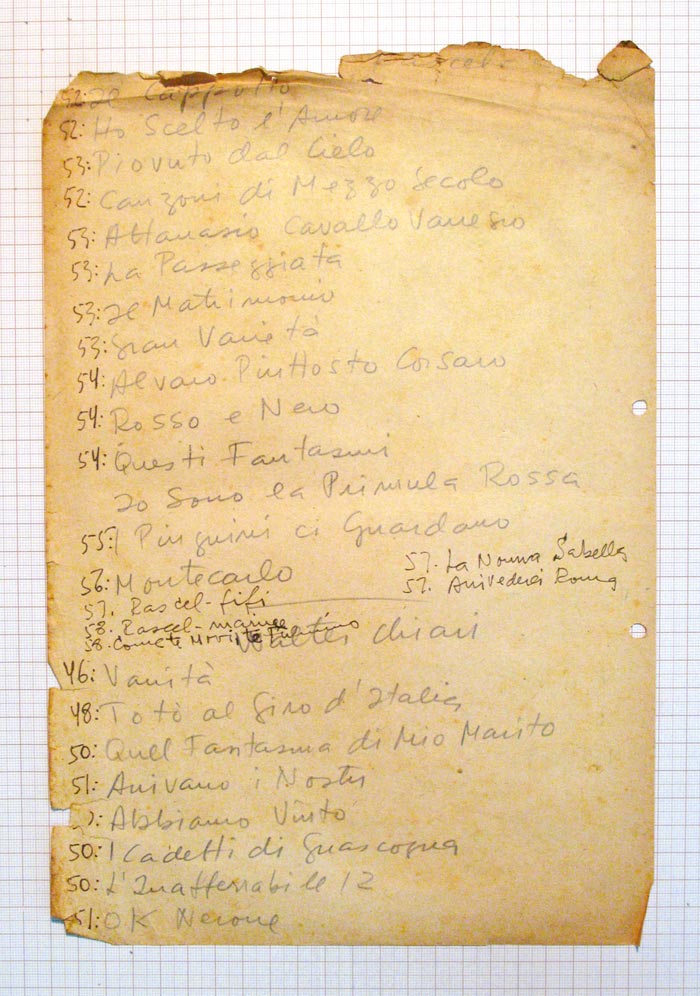 52: Il Cappotto
52: Ho Scelto l'Amore
53: Piovuto dal Cielo
52: Canzoni di Mezzo Secolo
53: Attanasio Cavallo Vanesio
53: La Passeggiata
53: Il Matrimonio
53: Gran Varietà
54: Alvaro Piuttosto Corsaro
54: Rosso e Nero
54: Questi Fantasmi
Io Sono la Primula Rossa
55: I Pinguini ci Guardano
56: Montecarlo
57. La Nonna Sabella
57. Arrivederci Roma
57. Rascel-fifì
58. Rascel-marine
58. Come te Movi te Fulmino
Walter Chiari
46: Vanità
48: Totò al Giro d'Italia
50: Quel Fantasma di Mio Marito
51: Arrivano i Nostri
Abbiamo Vinto
50: I Cadetti di Guascogna
50: L'Inafferrabile 12
51: OK Nerone